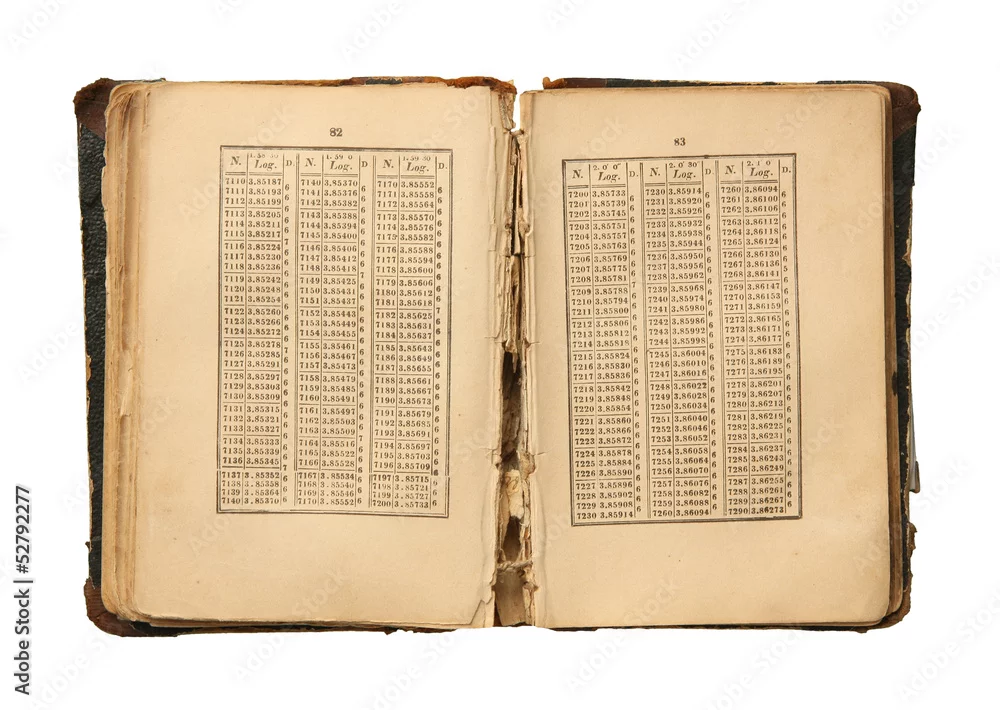 82
1. 58' 30" 1. 59' 0" 1. 59' 30"
N. Log. D. N. Log. D. N. Log. D.
7110 3.85187 7140 3.85370 7170 3.85552
7111 3.85193 7141 3.85376 7171 3.85558
7112 3.85199 7142 3.85382 7172 3.85564
7113 3.85205 7143 3.85388 7173 3.85570
7114 3.85211 7144 3.85394 7174 3.85576
7115 3.85217 7145 3.85400 7175 3.85582
7116 3.85224 7146 3.85406 7176 3.85588
7117 3.85230 7147 3.85412 7177 3.85594
7118 3.85236 7148 3.85418 7178 3.85600
7119 3.85242 7149 3.85425 7179 3.85606
7120 3.85248 7150 3.85431 7180 3.85612
7121 3.85254 7151 3.85437 7181 3.85618
7122 3.85260 7152 3.85443 7182 3.85625
7123 3.85266 7153 3.85449 7183 3.85631
7124 3.85272 7154 3.85455 7184 3.85637
7125 3.85278 7155 3.85461 7185 3.85643
7126 3.85285 7156 3.85467 7186 3.85649
7127 3.85291 7157 3.85473 7187 3.85655
7128 3.85297 7158 3.85479 7188 3.85661
7129 3.85303 7159 3.85485 7189 3.85667
7130 3.85309 7160 3.85491 7190 3.85673
7131 3.85315 7161 3.85497 7191 3.85679
7132 3.85321 7162 3.85503 7192 3.85685
7133 3.85327 7163 3.85509 7193 3.85691
7134 3.85333 7164 3.85516 7194 3.85697
7135 3.85339 7165 3.85522 7195 3.85703
7136 3.85345 7166 3.85528 7196 3.85709
7137 3.85352 7167 3.85534 7197 3.85715
7138 3.85358 7168 3.85540 7198 3.85721
7139 3.85364 7169 3.85546 7199 3.85727
7140 3.85370 7170 3.85552 7200 3.85733
83
2. 0' 0" 2. 0' 30" 2. 1' 0"
N. Log. D. N. Log. D. N. Log. D.
7200 3.85733 7230 3.85914 7260 3.86094
7201 3.85739 7231 3.85920 7261 3.86100
7202 3.85745 7232 3.85926 7262 3.86106
7203 3.85751 7233 3.85932 7263 3.86112
7204 3.85757 7234 3.85938 7264 3.86118
7205 3.85763 7235 3.85944 7265 3.86124
7206 3.85769 7236 3.85950 7266 3.86130
7207 3.85775 7237 3.85956 7267 3.86136
7208 3.85781 7238 3.85962 7268 3.86141
7209 3.85788 7239 3.85968 7269 3.86147
7210 3.85794 7240 3.85974 7270 3.86153
7211 3.85800 7241 3.85980 7271 3.86159
7212 3.85806 7242 3.85986 7272 3.86165
7213 3.85812 7243 3.85992 7273 3.86171
7214 3.85818 7244 3.85998 7274 3.86177
7215 3.85824 7245 3.86004 7275 3.86183
7216 3.85830 7246 3.86010 7276 3.86189
7217 3.85836 7247 3.86016 7277 3.86195
7218 3.85842 7248 3.86022 7278 3.86201
7219 3.85848 7249 3.86028 7279 3.86207
7220 3.85854 7250 3.86034 7280 3.86213
7221 3.85860 7251 3.86040 7281 3.86219
7222 3.85866 7252 3.86046 7282 3.86225
7223 3.85872 7253 3.86052 7283 3.86231
7224 3.85878 7254 3.86058 7284 3.86237
7225 3.85884 7255 3.86064 7285 3.86243
7226 3.85890 7256 3.86070 7286 3.86249
7227 3.85896 7257 3.86076 7287 3.86255
7228 3.85902 7258 3.86082 7288 3.86261
7229 3.85908 7259 3.86088 7289 3.86267
7230 3.85914 7260 3.86094 7290 3.86273
Adobe Stock | #52792277